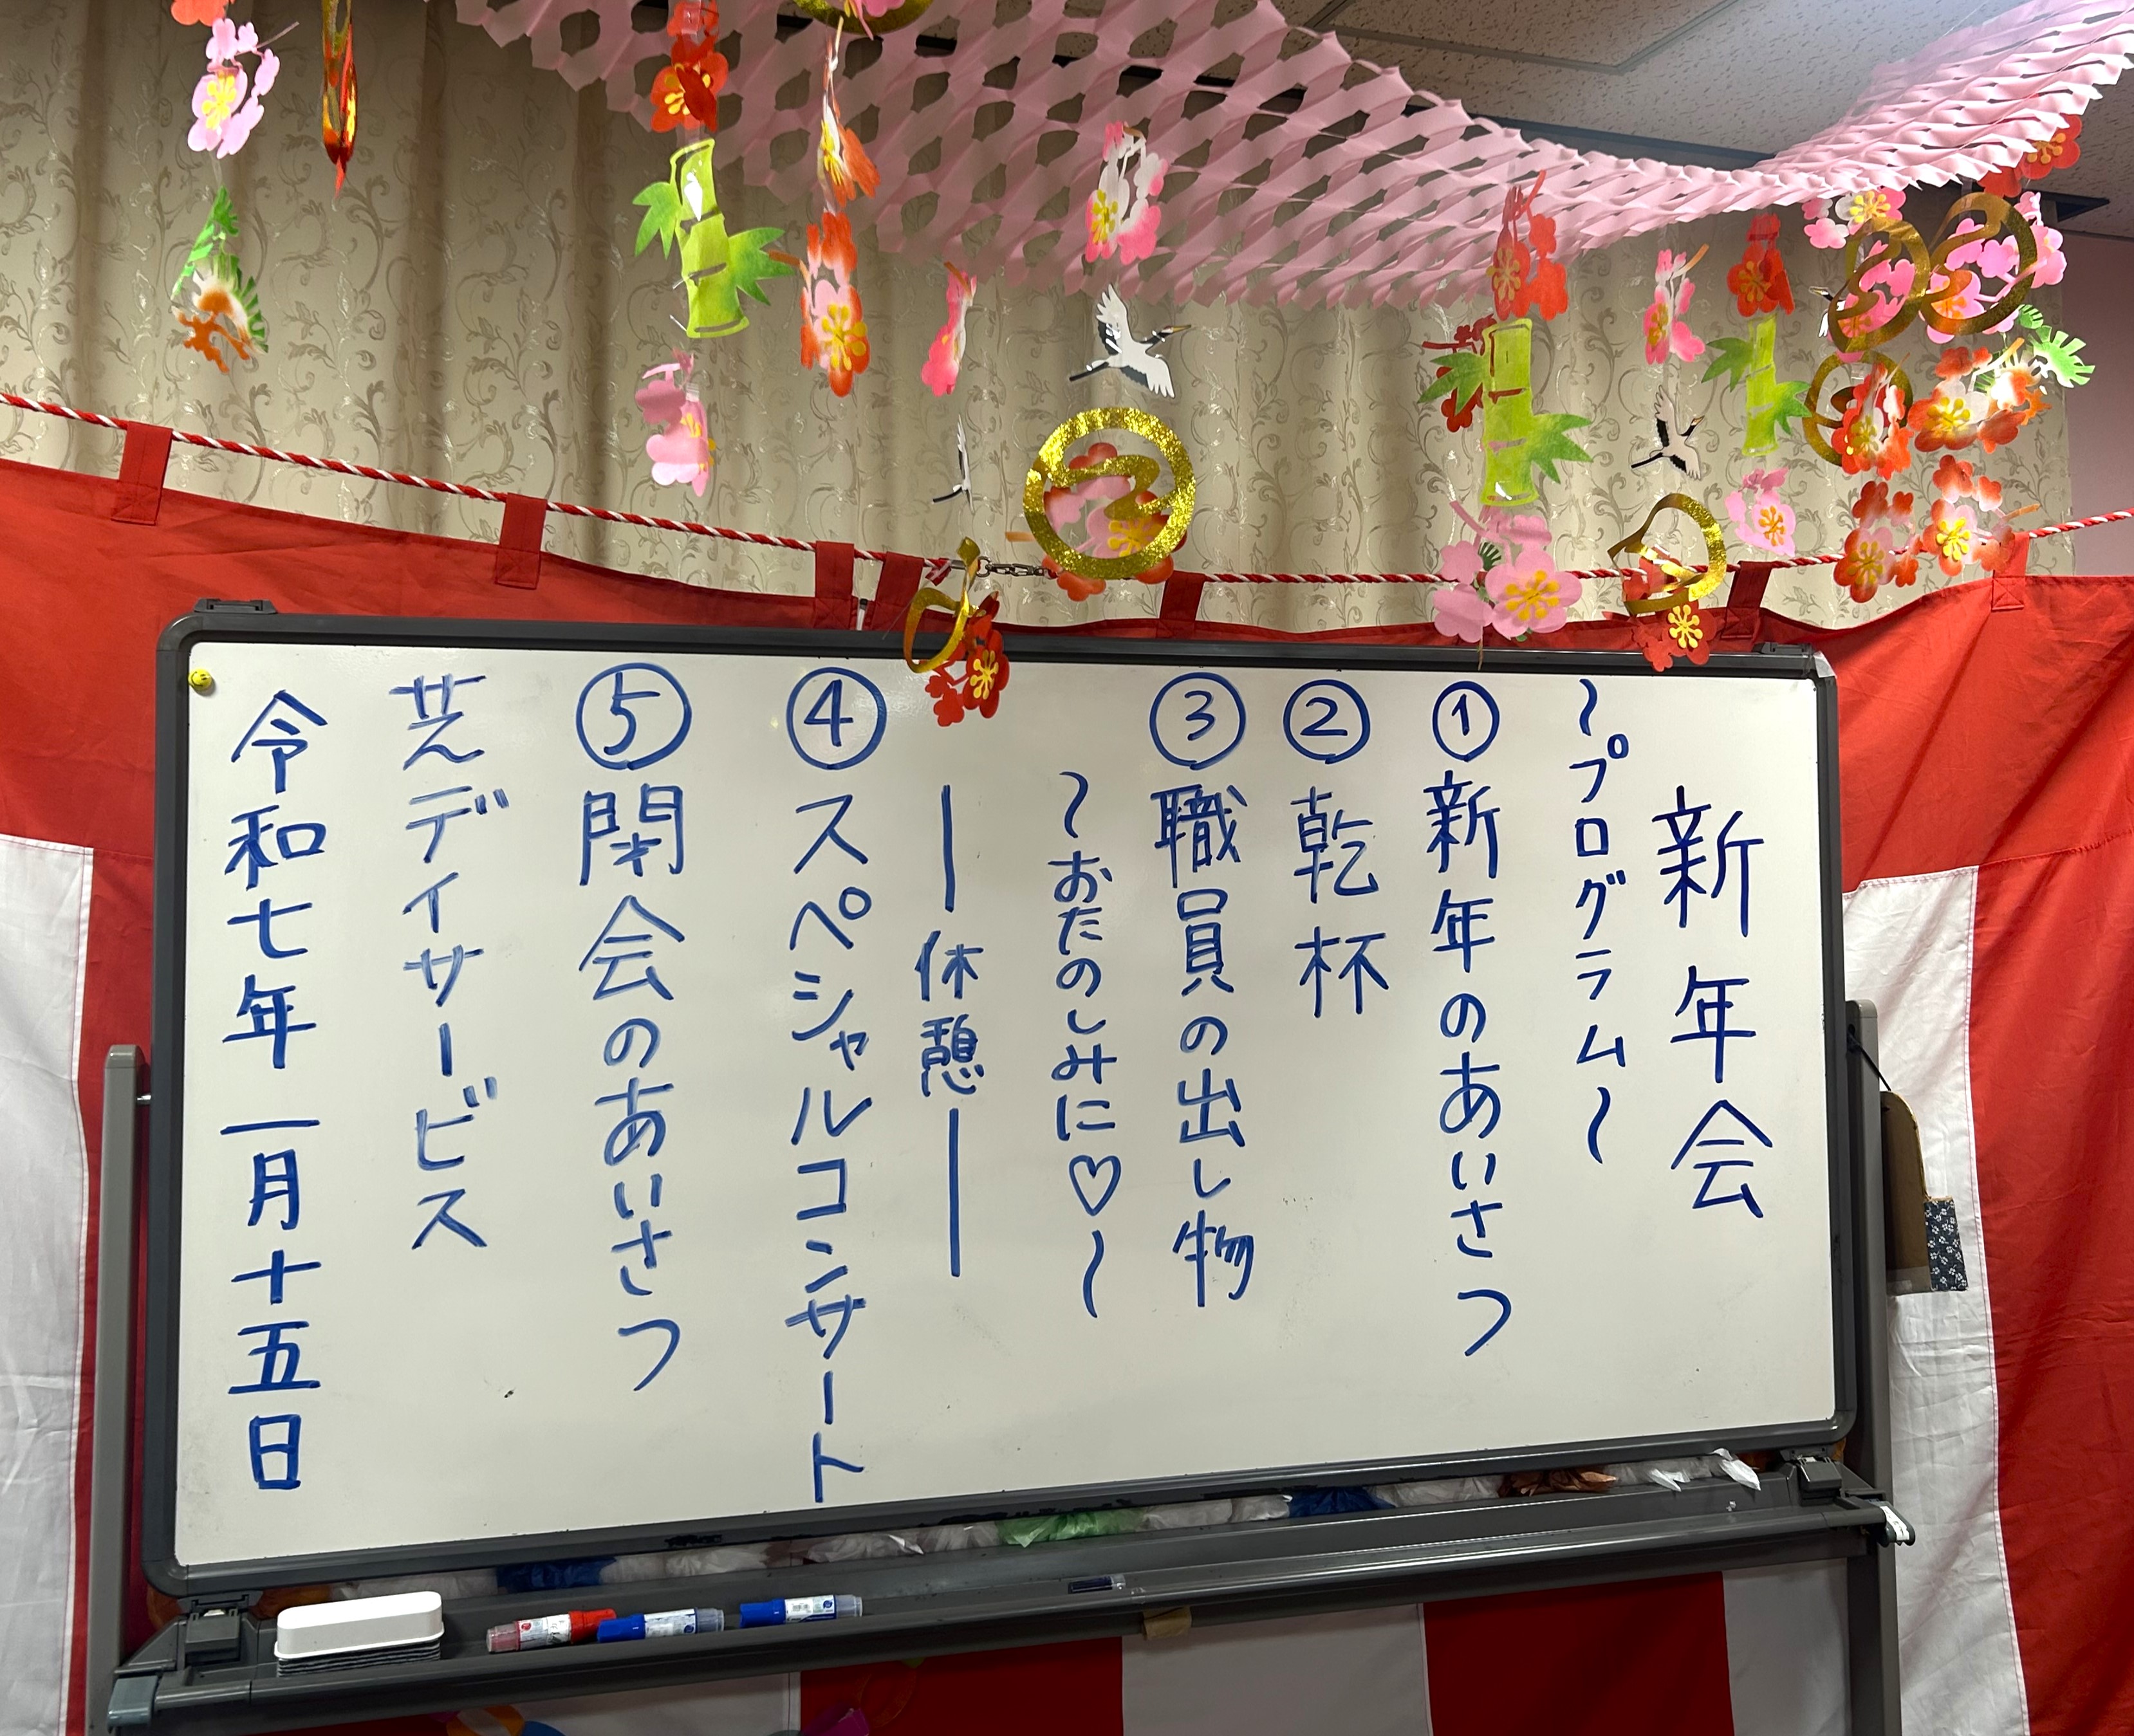 新年会
～プログラム～
①新年のあいさつ
②乾杯
③職員の出し物
～おたのしみに♡～
―休憩―
④スペシャルコンサート
⑤閉会のあいさつ
芝デイサービス
令和七年一月十五日